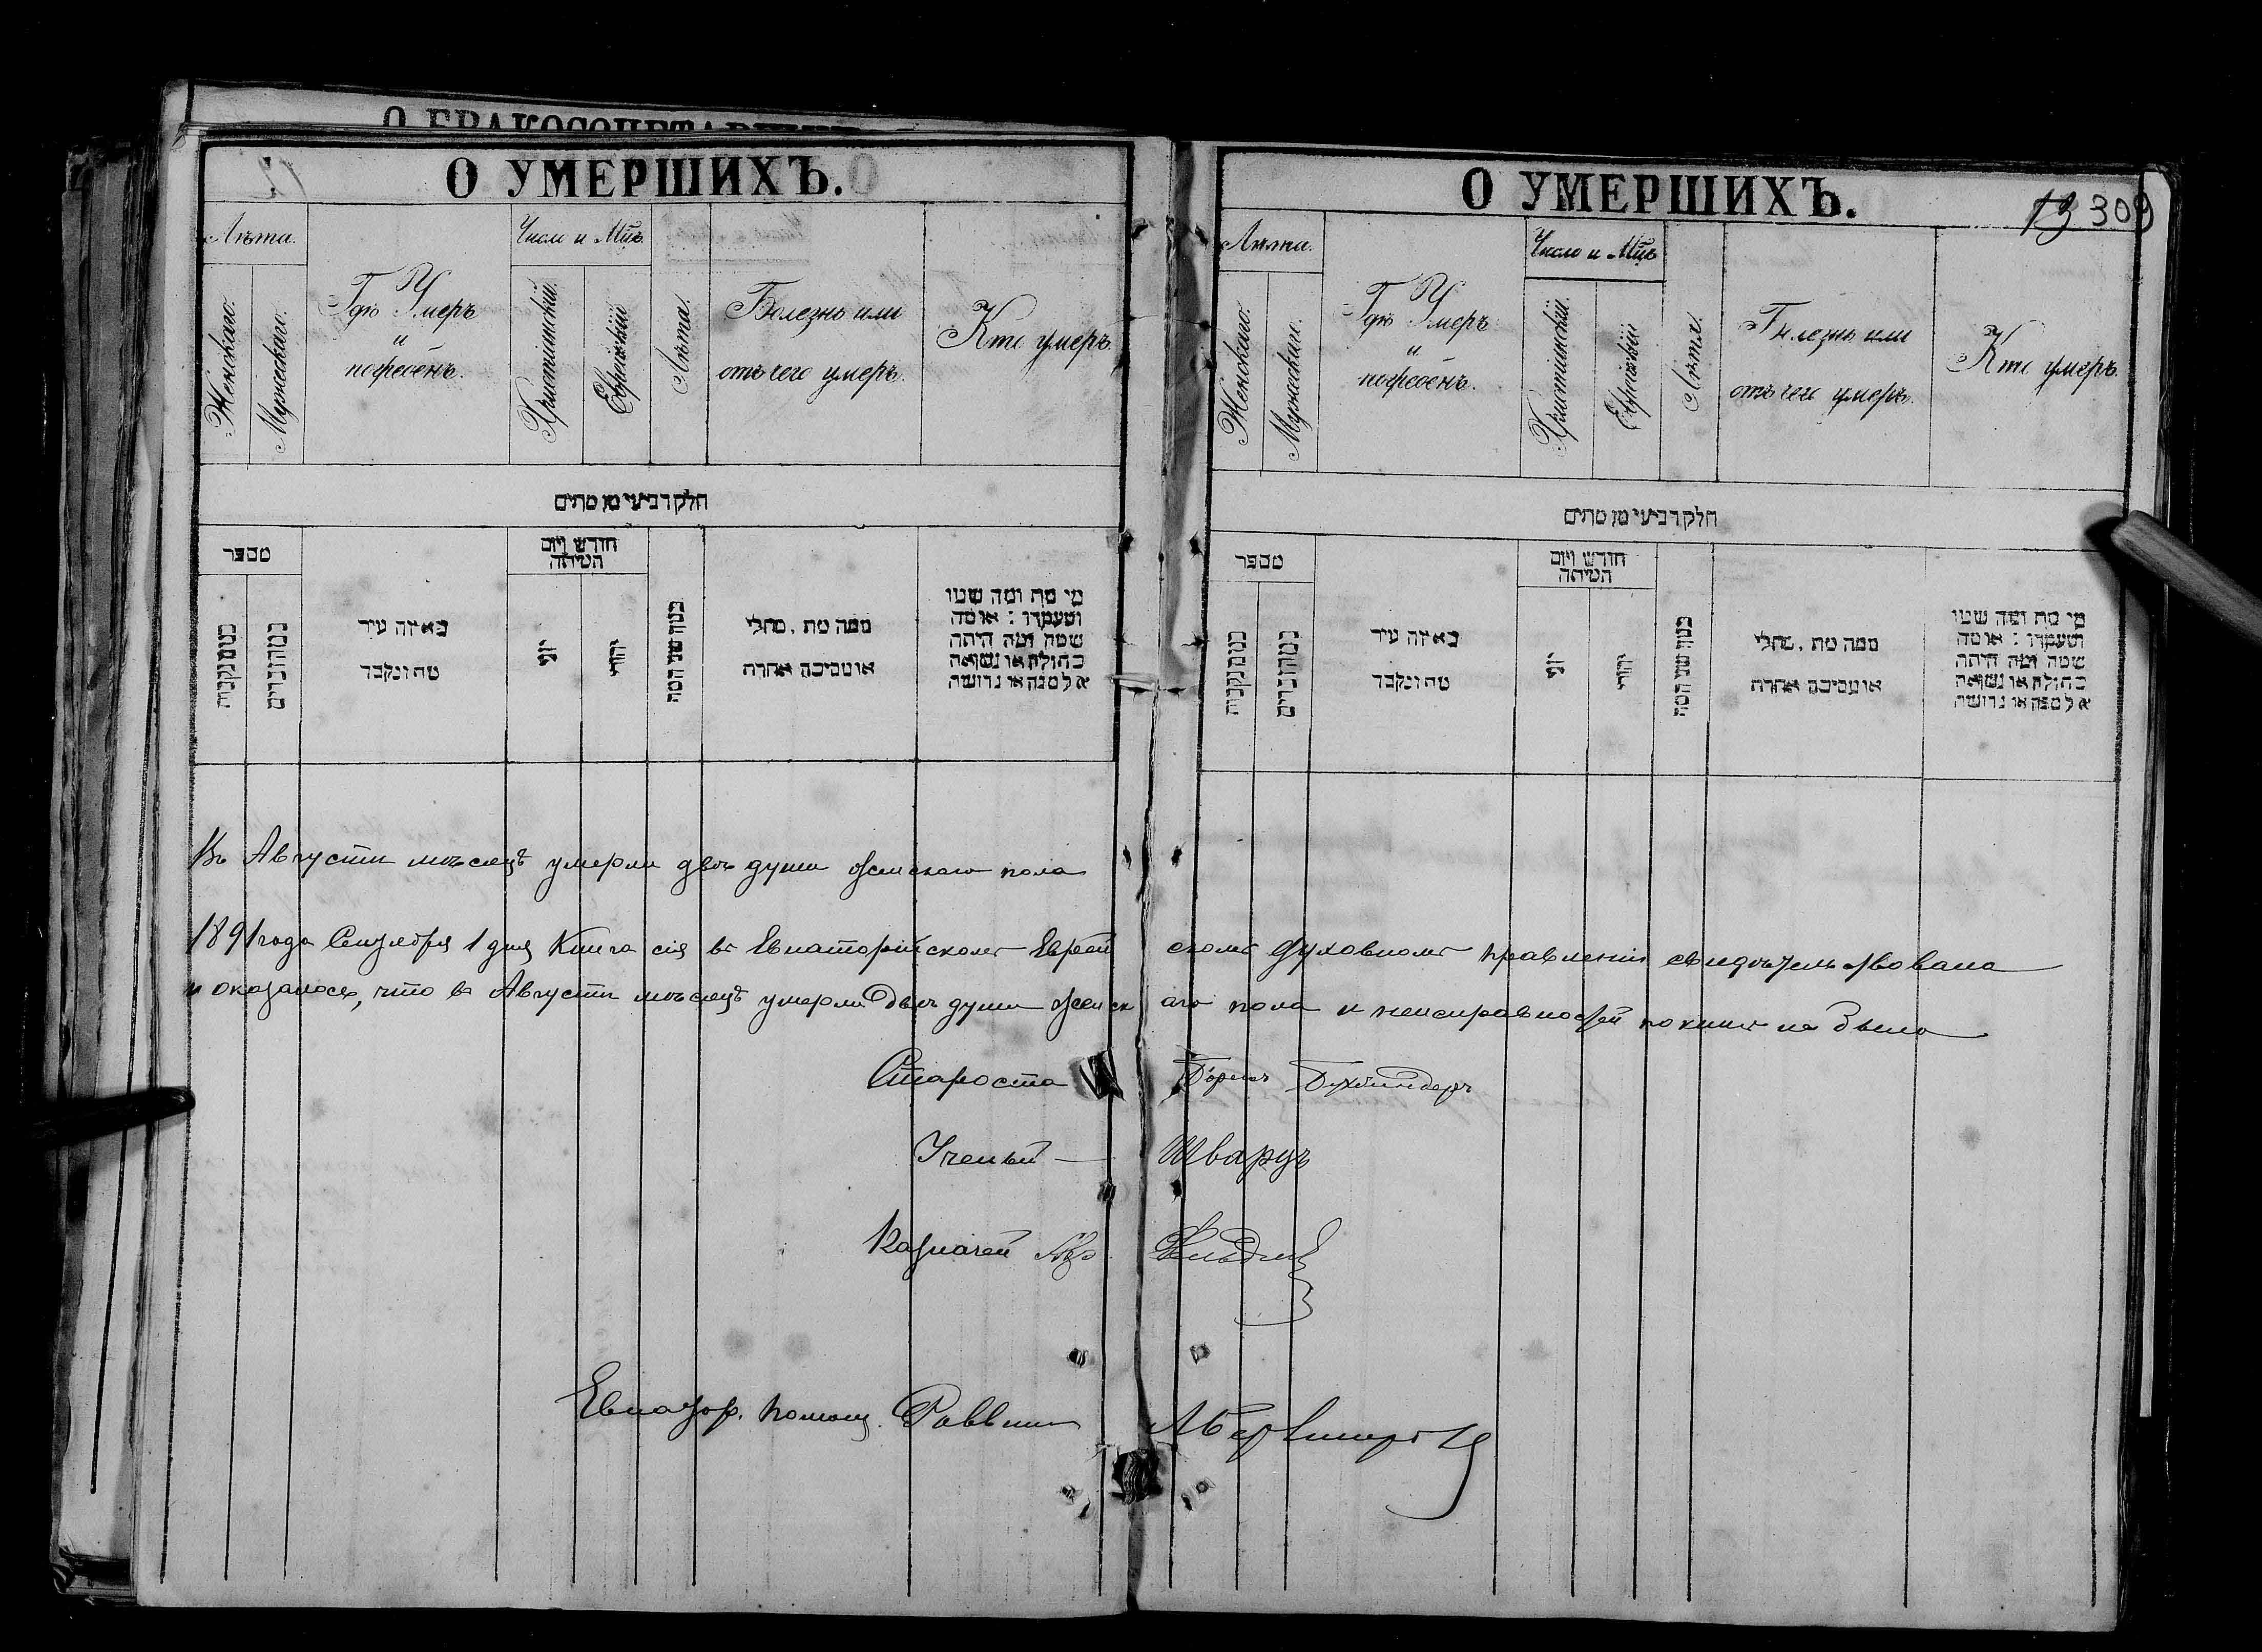 О БРАКОСОЧЕТАВШИХСЯ
О УМЕРШИХЪ.
Лѣта.
Женскаго.
Мужескаго.
Гдѣ Умеръ
и
погребенъ.
Число и Мцъ
Христіянскій.
Еврейскій
Лѣта.
Болезнь или
отъ чего умеръ.
Кто умеръ.
חלק רביעי מן מתים
מספר
במס׳ נקבות
במס׳ זכרים
באיזה עיר
מת ונקבר
חודש ויום
המיתה
יוני
יהודי
כמה שני המת
ממה מת . מחלי
או מסיבה אחרת
מי מת ומה שמו
ומעמדו : או מה
שמה ומה היתה
בתולה או נשואה
אלמנה או גרושה
Въ Августѣ мѣсяцѣ умерли двѣ души женскаго пола
О УМЕРШИХЪ.
13 309
Лѣта.
Женскаго.
Мужескаго.
Гдѣ Умеръ
и
погребенъ.
Число и Мцъ
Христіянскій.
Еврейскій
Лѣта.
Болезнь или
отъ чего умеръ.
Кто умеръ.
חלק רביעי מן מתים
מספר
במס׳ נקבות
במס׳ זכרים
באיזה עיר
מת ונקבר
חודש ויום
המיתה
יוני
יהודי
כמה שני המת
ממה מת . מחלי
או מסיבה אחרת
מי מת ומה שמו
ומעמדו : או מה
שמה ומה היתה
בתולה או נשואה
אלמנה או גרושה
1891 года Сентября 1 дня Книга сія въ Евпаторійскомъ Еврейскомъ Духовномъ правленіи свидѣтельствована
и оказалось, что въ Августѣ мѣсяцѣ умерли двѣ души женскаго пола и неисправностей по книгѣ не было
Староста Борисъ Бухбиндеръ
Ученый — Шварцъ
Казначей
Евпатор. помощ. Раввина